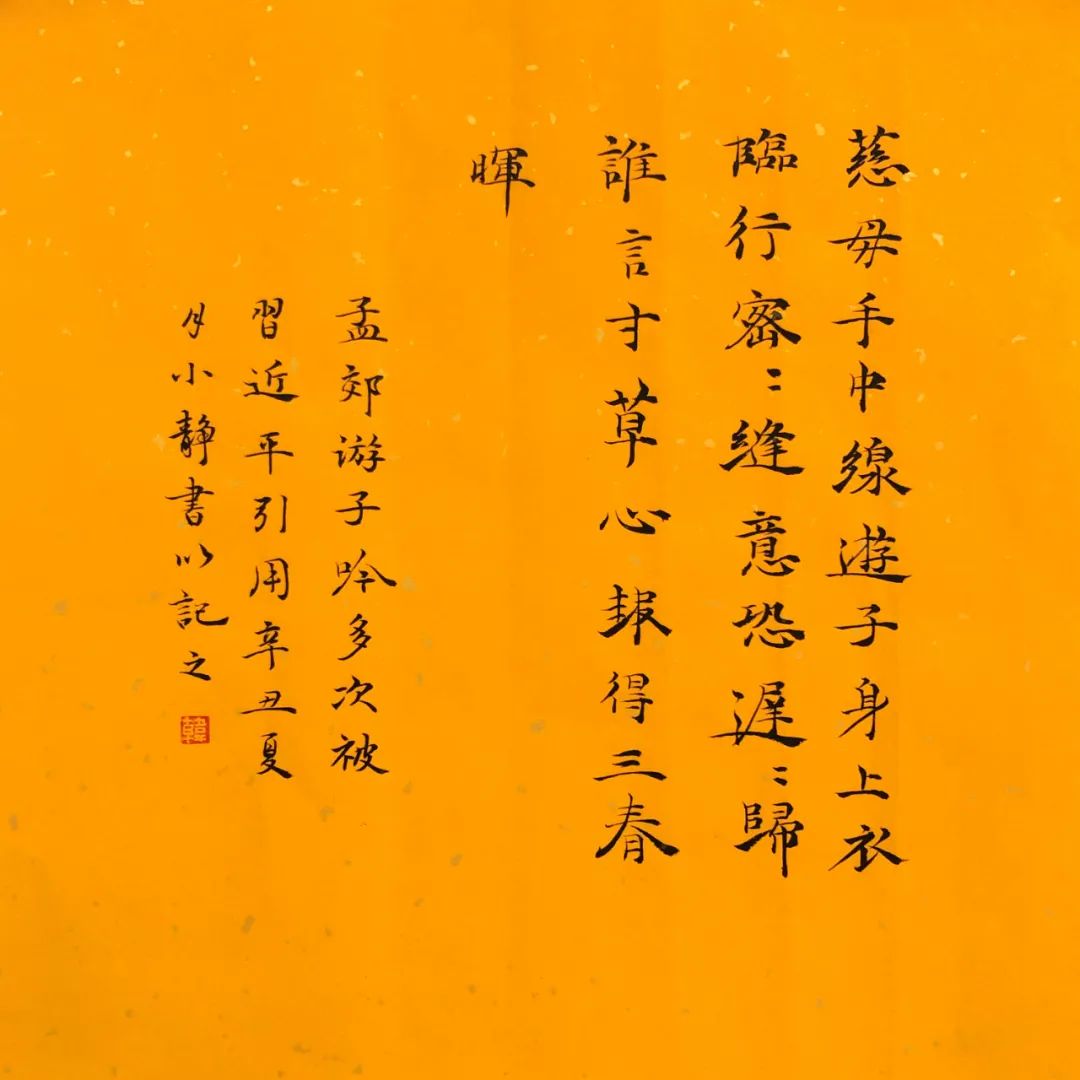 慈母手中線遊子身上衣
臨行密〻縫意恐遲〻歸
誰言寸草心報得三春
暉
孟郊游子吟多次被
習近平引用辛丑夏
月小静書以記之
韓